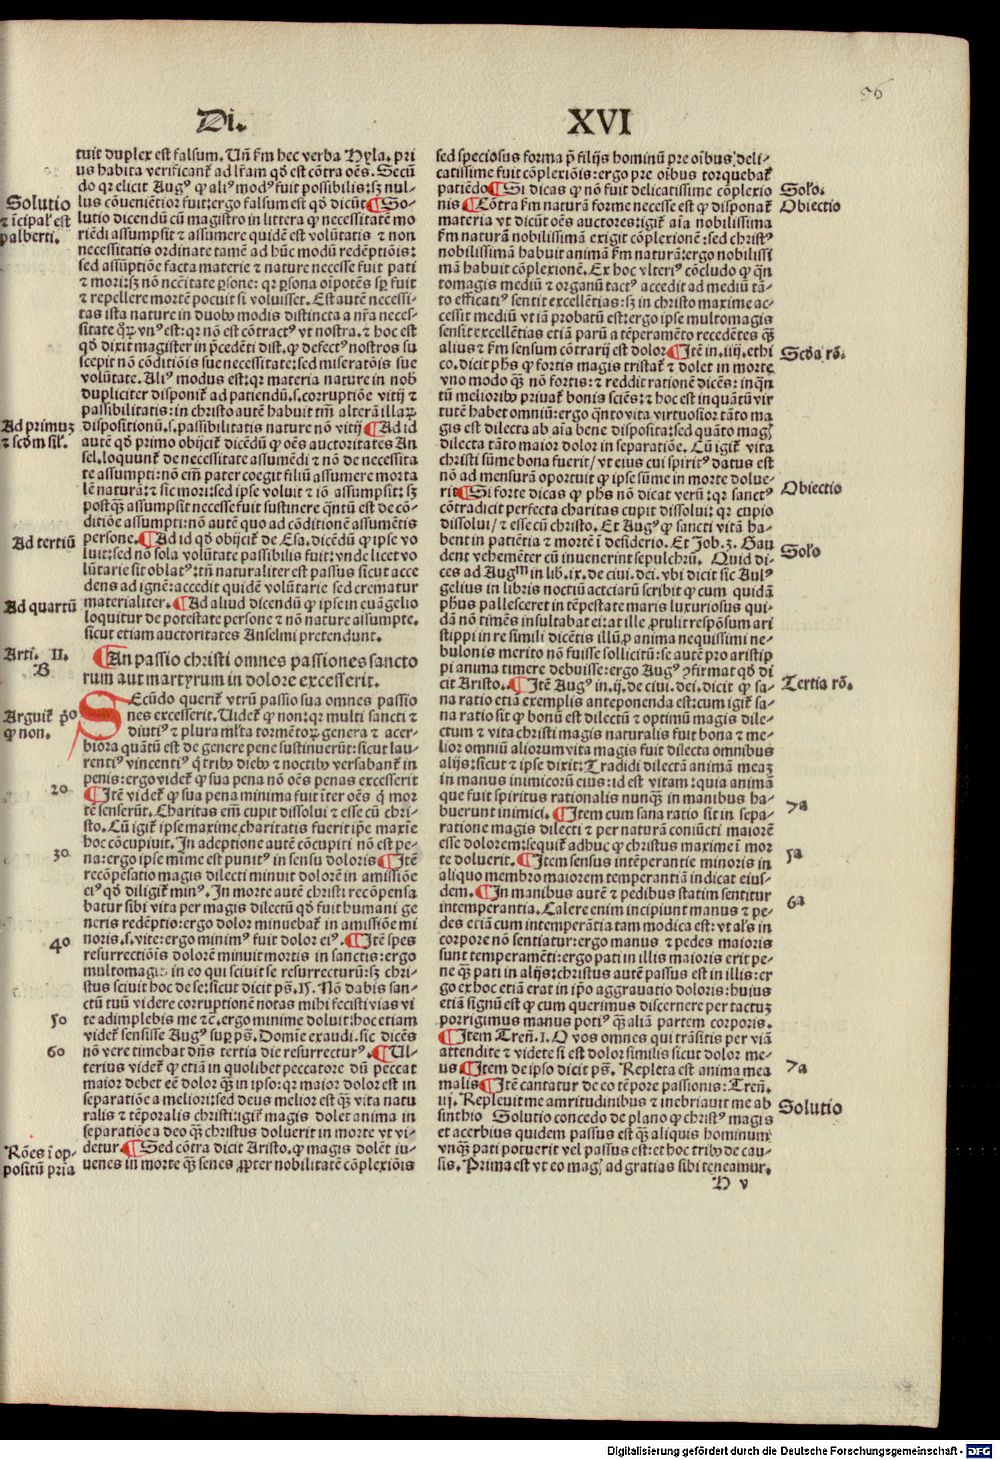 56
Di.
XVI
tuit duplex est falsum. Uñ fm hec verba Hyla. pri
us habita verificant̃ ad lr̃am qď est cõtra oẽs. Secũ
do qr elicit Augꝰ ꝙ aliꝰ modꝰ fuit possibilis: sꝫ nul-
lus cõueniẽtior fuit: ergo falsum est qď dicũt ¶ So-
lutio dicendũ cũ magistro in littera ꝙ necessitatẽ mo
riẽdi assumpsit ⁊ assumere quidẽ est volũtatis ⁊ non
necessitatis ordinate tamẽ ad hũc modũ redẽptiõis:
sed assũptiõe facta materie ⁊ nature necesse fuit pati
⁊ mori: sꝫ nõ ncc̃itate ꝑsone: qr ꝑsona oĩpotẽs sꝑ fuit
⁊ repellere mortẽ potuit si voluisset. Est autẽ necessi-
tas ista nature in duobꝰ modis distincta a nr̃a neces-
sitate qꝝ vnꝰ est: qr nõ est cõtractꝰ vt nostra. ⁊ hoc est
qď dixit magister in p̃cedẽti dist. ꝙ defectꝰ nostros su
scepit nõ cõditiõis sue necessitate: sed miseratõis sue
volũtate. Aliꝰ modus est: qr materia nature in nob̃
dupliciter disponit̃ ad patiendũ. s. corruptiõe vitij ⁊
passibilitatis: in christo autẽ habuit tm̃ alterã illaꝝ
dispositionũ. s. passibilitatis nature nõ vitij ¶ Ad id
autẽ qď primo obijcit̃ dicẽdũ ꝙ oẽs auctoritates An
sel. loquunt̃ de necessitate assumẽdi ⁊ nõ de necessita
te assumpti: nõ em̃ pater coegit filiũ assumere morta
lẽ naturã: ⁊ sic mori: sed ipse voluit ⁊ iõ assumpsit: sꝫ
postꝗ̃ assumpsit necesse fuit sustinere qn̄tũ est de cõ-
ditiõe assumpti: nõ autẽ quo ad cõditionẽ assumẽtis
persone. ¶ Ad id qď obijcit̃ de Esa. dicẽdũ ꝙ ipse vo
luit: sed nõ sola volũtate passibilis fuit: vnde licet vo
lũtarie sit oblatꝰ: tñ naturaliter est passus sicut acce
dens ad ignẽ: accedit quidẽ volũtarie sed crematur
materialiter. ¶ Ad aliud dicendũ ꝙ ipse in euãgelio
loquitur de potestate persone ⁊ nõ nature assumpte.
sicut etiam auctoritates Anselmi pretendunt.
¶ An passio christi omnes passiones sancto
rum aut martyrum in dolore excesserit.
SEcũdo querit̃ vtrũ passio sua omnes passio
nes excesserit. Uidet̃ ꝙ non: qr multi sancti ⁊
diutiꝰ ⁊ plura ml̃ta tormẽtoꝝ genera ⁊ acer-
biora quãtũ est de genere pene sustinuerũt: sicut lau-
rentiꝰ vincentiꝰ q̃ tribꝰ diebꝰ ⁊ noctibꝰ versabant̃ in
penis: ergo videt̃ ꝙ sua pena nõ oẽs penas excesserit
¶ Itẽ videt̃ ꝙ sua pena minima fuit ĩter oẽs q̃ mor
tẽ senserũt. Charitas em̃ cupit dissolui ⁊ esse cũ chri-
sto. Cũ igit̃ ipse maxime charitatis fuerit ip̃e maxĩe
hoc cõcupiuit. In adeptione autẽ cõcupiti nõ est pe-
na: ergo ipse mime est punitꝰ in sensu doloris ¶ Itẽ
recõpẽsatio magis dilecti minuit dolorẽ in amissiõe
eiꝰ qď diligit̃ minꝰ. In morte autẽ christi recõpensa
batur sibi vita per magis dilectũ qď fuit humani ge
neris redẽptio: ergo dolor minuebat̃ in amissiõe mi
noris. s. vite: ergo minimꝰ fuit dolor eiꝰ. ¶ Itẽ spes
resurrectiõis dolorẽ minuit mortis in sanctis: ergo
multomagis in eo qui sciuit se resurrecturũ: sꝫ chri-
stus sciuit hoc de se: sicut dicit ps̃. 15. Nõ dabis san-
ctũ tuũ videre corruptionẽ notas mihi fecisti vias vi
te adimplebis me ⁊c̃. ergo minime doluit: hoc etiam
videt̃ sensisse Augꝰ suꝑ ps̃. Domĩe exaudi. sic dicẽs
nõ vere timebat dñs tertia die resurrecturꝰ. ¶ Ul-
terius videt̃ ꝙ etiã in quolibet peccatore dũ peccat
maior debet eẽ dolor ꝗ̃ in ipso: qr maior dolor est in
separatiõe a meliori: sed deus melior est ꝗ̃ vita natu
ralis ⁊ tẽporalis christi: igit̃ magis dolet anima in
separatiõe a deo ꝗ̃ christus doluerit in morte vt vi-
detur. ¶ Sed cõtra dicit Aristo. ꝙ magis dolẽt iu-
uenes in morte ꝗ̃ senes ꝓpter nobilitatẽ cõplexiõis
Solutio
⁊ ĩcipal̃ est
p̃ alberti.
Ad primuꝫ
⁊ scďm sil̃.
Ad tertiũ
Ad quartũ
Arti. II.
B
Arguit̃ p̃o
ꝙ non.
20
30
40
50
60
Rões ĩ op-
positũ pria
sed speciosus forma p̃ filijs hominũ pre oĩbus deli-
catissime fuit cõplexiõis: ergo pre oĩbus torquebat̃
patiẽdo ¶ Si dicas ꝙ nõ fuit delicatissime cõplexio
nis ¶ Cõtra fm naturã forme necesse est ꝙ disponat̃
materia vt dicũt oẽs auctores: igit̃ aĩa nobilissima
fm naturã nobilissimã exigit cõplexionẽ: sed christꝰ
nobilissimã habuit animã fm naturã: ergo nobilissi
mã habuit cõplexionẽ. Ex hoc vlteriꝰ cõcludo ꝙ qñ
tomagis mediũ ⁊ organũ tactꝰ accedit ad mediũ tã-
to efficatiꝰ sentit excellẽtias: sꝫ in christo maxime ac-
cessit mediũ vt iã probatũ est: ergo ipse multomagis
sensit excellẽtias etiã parũ a tẽperamẽto recedẽtes ꝗ̃
alius ⁊ fm sensum cõtrarij est dolor ¶ Itẽ in. iiij. ethi
co. dicit ph̃s ꝙ fortis magis tristat̃ ⁊ dolet in morte
vno modo ꝗ̃ nõ fortis: ⁊ reddit rationẽ dicẽs: inqñ
tũ melioribꝰ priuat̃ bonis sciẽs: ⁊ hoc est inquãtũ vir
tutẽ habet omniũ: ergo qn̄to vita virtuosior tãto ma
gis est dilecta ab aĩa bene disposita: sed quãto mag̃
dilecta tãto maior dolor in separatiõe. Cũ igit̃ vita
christi sũme bona fuerit / vt eius cui spiritꝰ datus est
nõ ad mensurã oportuit ꝙ ipse sũme in morte dolue-
rit ¶ Si forte dicas ꝙ ph̃s nõ dicat verũ: qr sanctꝰ
cõtradicit perfecta charitas cupit dissolui: qr cupio
dissolui / ⁊ esse cũ christo. Et Augꝰ ꝙ sancti vitã ha-
bent in patiẽtia ⁊ mortẽ ĩ desiderio. Et Job. 3. Gau
dent vehemẽter cũ inuenerint sepulchrũ. Quid di-
ces ad Augᵐ in lib. ix. de ciui. dei. vbi dicit sic Aulꝰ
gelius in libris noctiũ acticiarũ scribit ꝙ cum quidã
ph̃us pallesceret in tẽpestate maris luxuriosus qui-
dã nõ timẽs insultabat ei: at ille ꝓtulit respõsum ari
stippi in re simili dicẽtis illũ, p anima nequissimi ne-
bulonis merito nõ fuisse sollicitũ: se autẽ pro aristip
pi anima timere debuisse: ergo Augꝰ ꝯfirmat qď di
cit Aristo. ¶ Itẽ Augꝰ in. ij. de ciui. dei. dicit ꝙ sa-
na ratio etiã exemplis anteponenda est: cum igit̃ sa-
na ratio sit ꝙ bonũ est dilectũ ⁊ optimũ magis dile-
ctum ⁊ vita christi magis naturalis fuit bona ⁊ me-
lior omniũ aliorum vita magis fuit dilecta omnibus
alijs: sicut ⁊ ipse dixit: Tradidi dilectã animã meaꝫ
in manus inimicorũ eius: id est vitam: quia animã
que fuit spiritus rationalis nunꝗ̃ in manibus ha-
buerunt inimici. ¶ Item cum sana ratio sit in sepa-
ratione magis dilecti ⁊ per naturã coniũcti maiorẽ
esse dolorem: sequit̃ adhuc ꝙ christus maxime ĩ mor
te doluerit. ¶ Item sensus intẽperantie minoris in
aliquo membro maiorem temperantiã indicat eius-
dem. ¶ In manibus autẽ ⁊ pedibus statim sentitur
intemperantia. Calere enim incipiunt manus ⁊ pe-
des etiã cum intemperãtia tam modica est: vt al̃s in
corpore nõ sentiatur: ergo manus ⁊ pedes maioris
sunt temperamẽti: ergo pati in illis maioris erit pe-
ne ꝗ̃ pati in alijs: christus autẽ passus est in illis: er
go ex hoc etiã erat in ip̃o aggrauatio doloris: huius
etiã signũ est ꝙ cum querimus discernere per tactuꝫ
porrigimus manus potiꝰ ꝗ̃ aliã partem corporis.
¶ Item Treñ. 1. O vos omnes qui trãsitis per viã
attendite ⁊ videte si est dolor similis sicut dolor me-
us ¶ Item de ipso dicit ps̃. Repleta est anima mea
malis ¶ Itẽ cantatur de eo tẽpore passionis: Treñ.
iij. Repleuit me amritudinibus ⁊ inebriauit me ab
sinthio Solutio concedo de plano ꝙ christꝰ magis
et acerbius quidem passus est ꝗ̃ aliquis hominum
vnꝗ̃ pati potuerit vel passus est: et hoc tribꝰ de cau-
sis. Prima est vt eo mag̃ ad gratias sibi teneamur.
H v
Solo.
Obiectio
Scďa rõ.
Obiectio
Solo
Tertia rõ.
7a
5a
6a
7a
Solutio
Digitalisierung gefördert durch die Deutsche Forschungsgemeinschaft - DFG